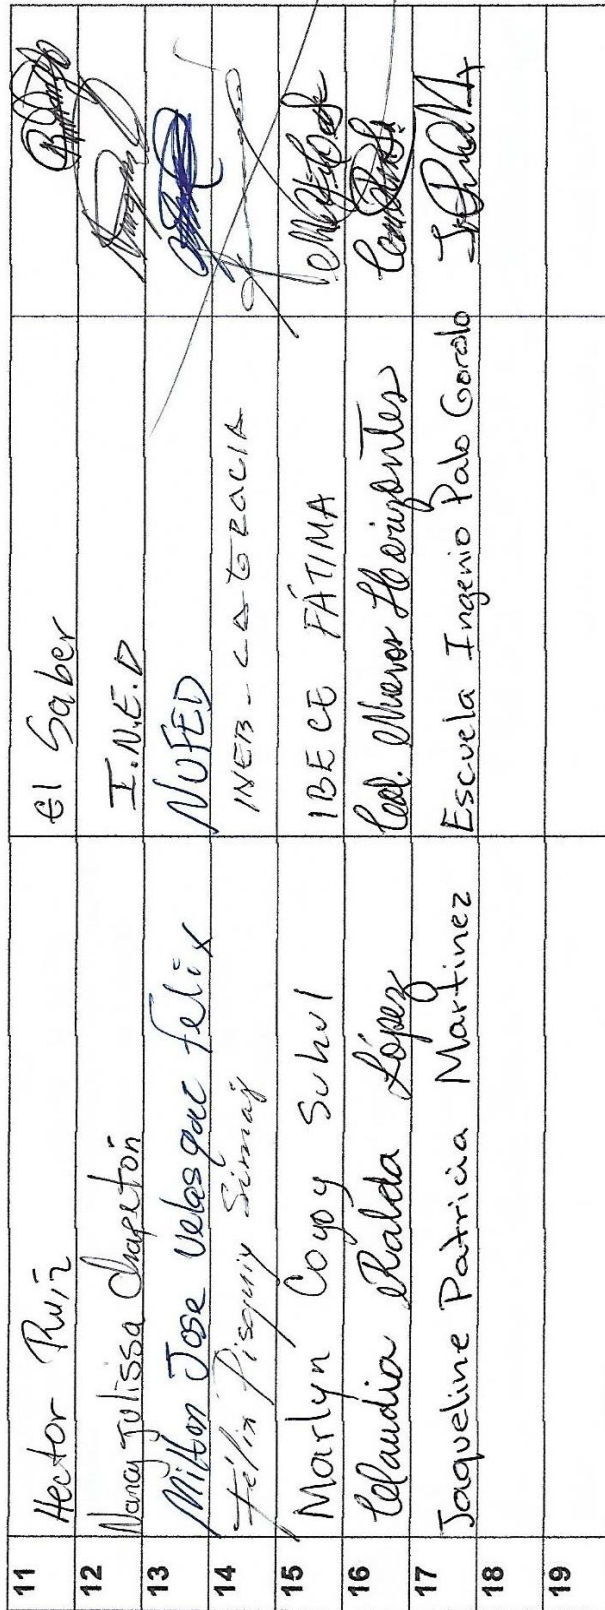 11 Hector Ruiz El Saber
12 Nancy Julissa Chapetón I.N.E.D
13 Milton Jose Velasquez Felix NUFED
14 Félix Pisquiy Simaj INEB -
15 Marlyn Coyoy Suhul IBECE FÁTIMA
16 Claudia Ralda López Col. Nuevos Horizontes
17 Jaqueline Patricia Martinez Escuela Ingenio Palo Gordo
18
19